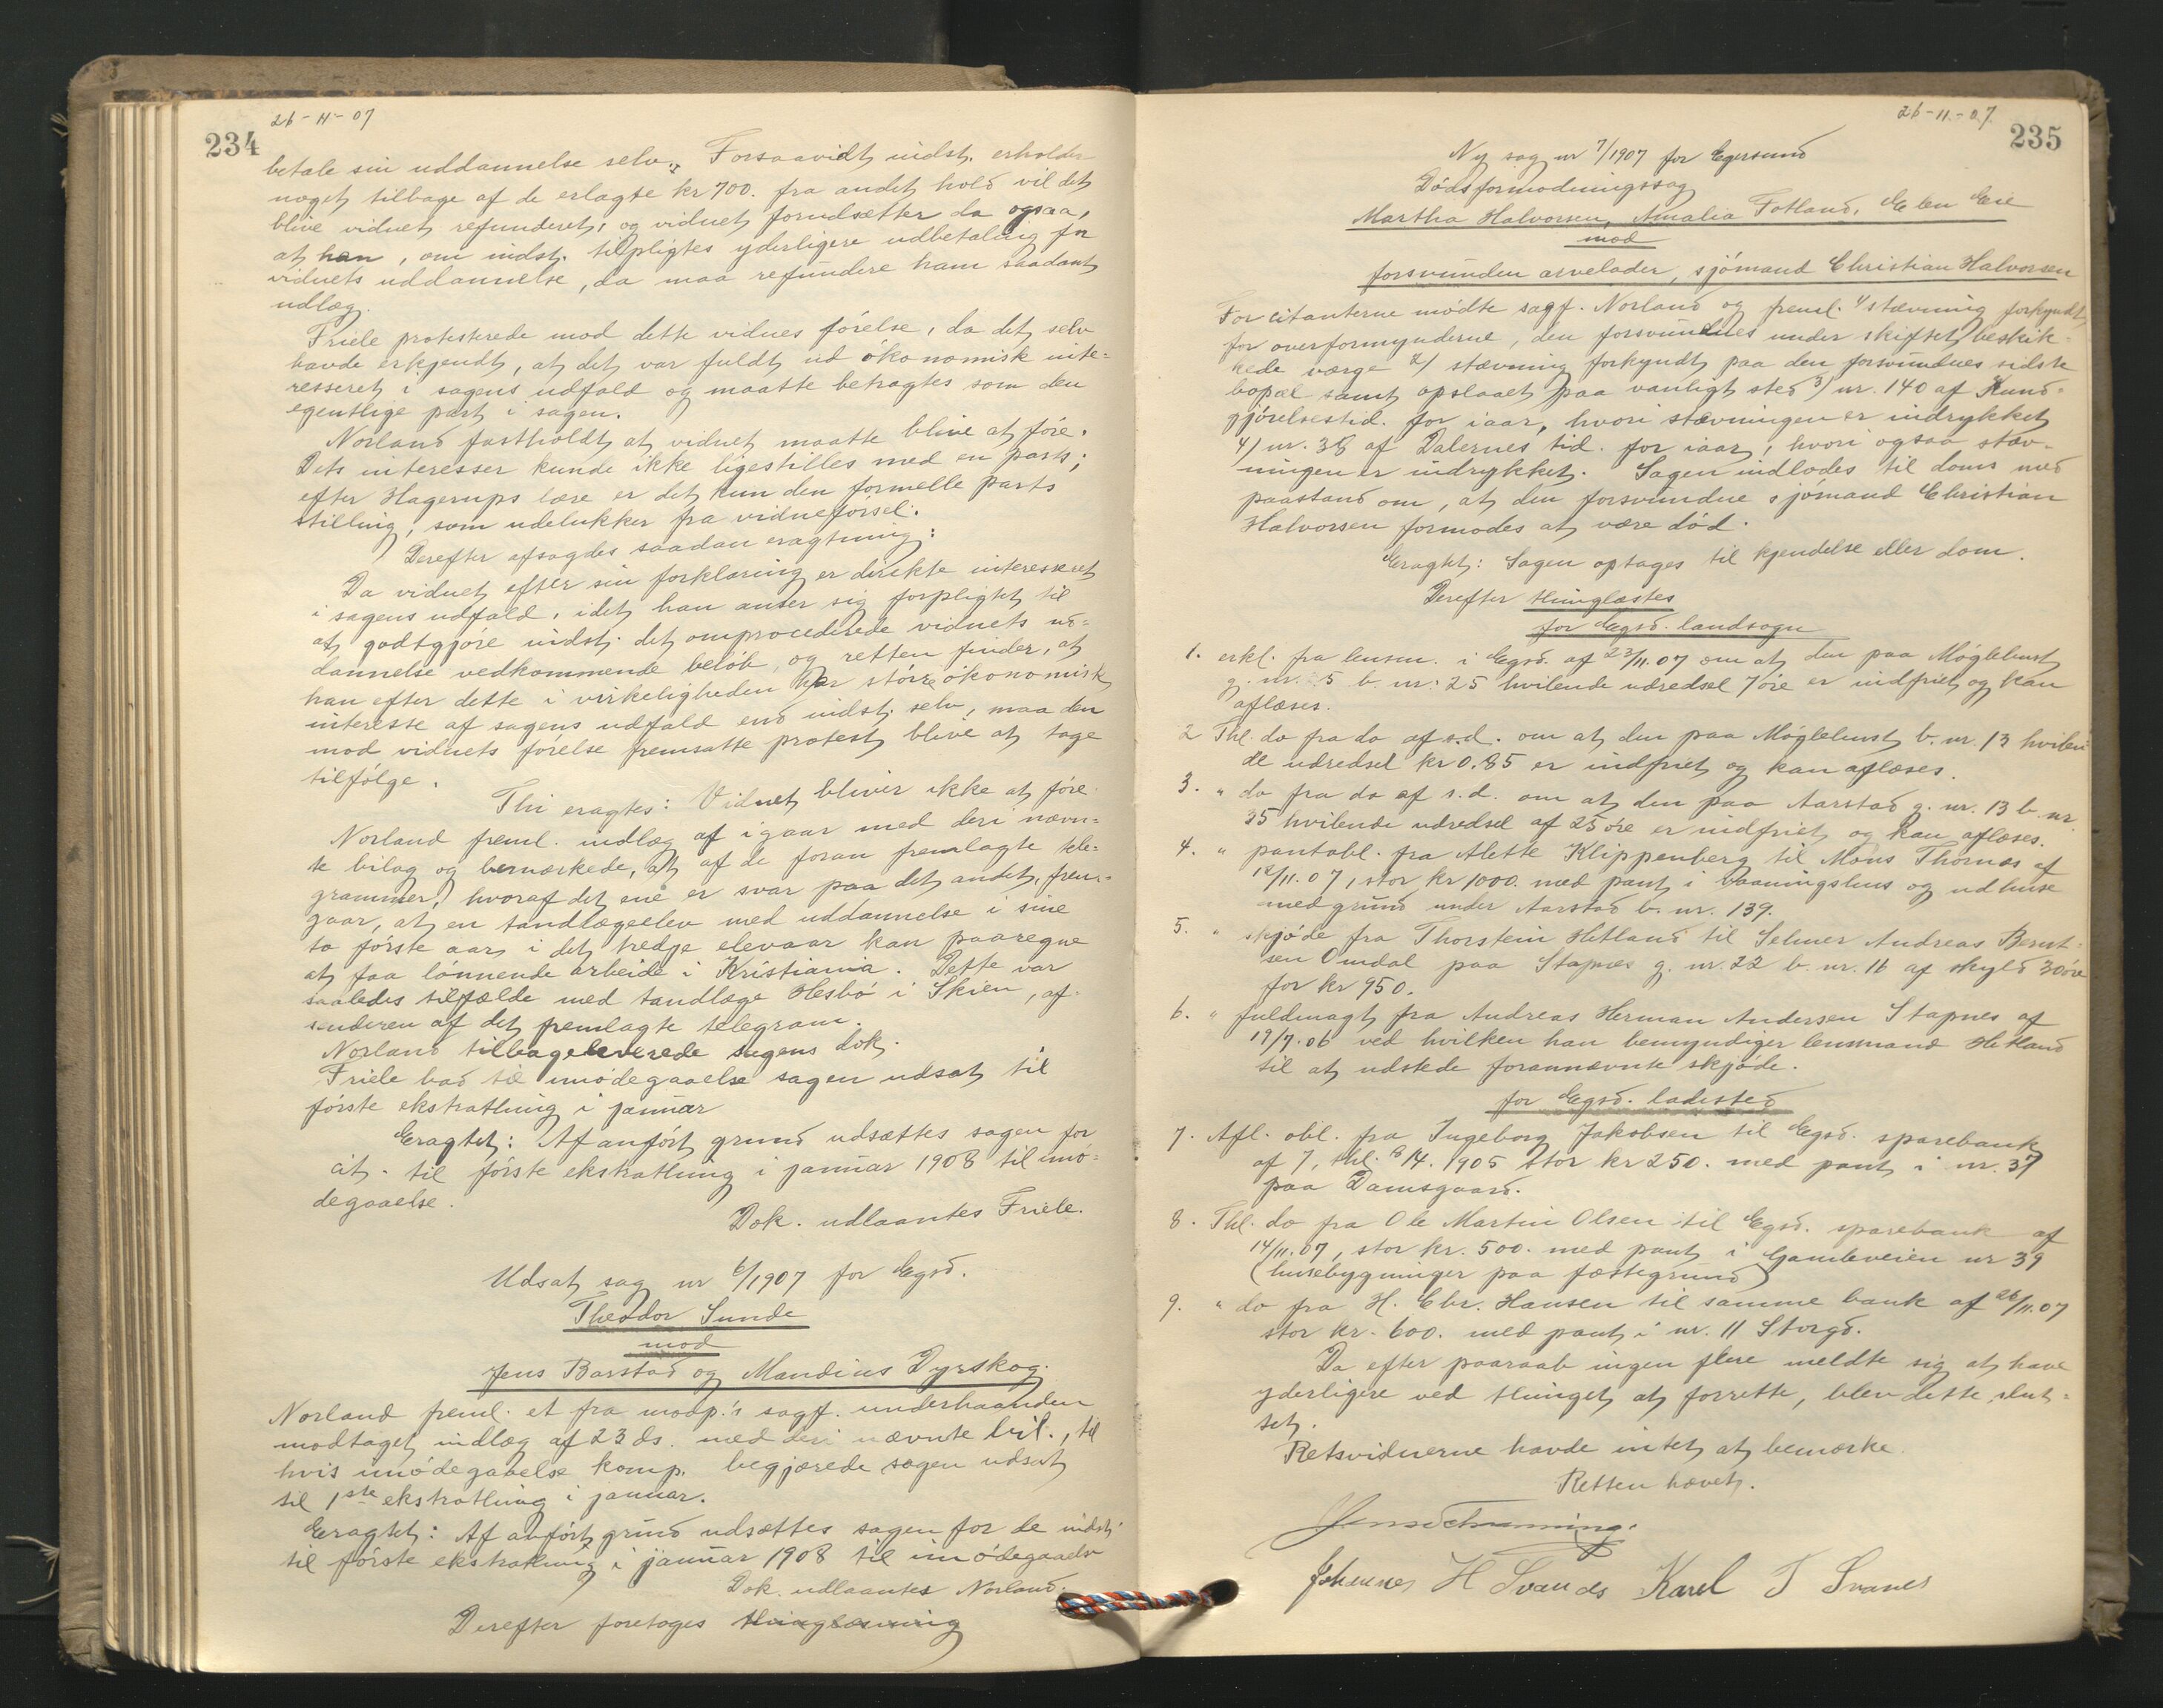 234
26-11-07
betale sin uddannelse selv. Forsaavidt indst. erholder
noget tilbage af de erlagte kr 700. fra andet hold vil det
blive vidnet refunderet, og vidnet forudsætter da ogsaa,
at han, om indst. tilpligtes yderligere udbetaling for
vidnets uddannelse, da maa refundere ham saadant
udlæg.
Friele protesterede mod dette vidnes førelse, da det selv
havde erkjendt, at det var fuldt ud økonomisk inte-
resseret i sagens udfald og maatte betragtes som den
egentlige part i sagen.
Norland fastholdt at vidnet maatte blive at føre.
Dets interesser kunde ikke ligestilles med en parts;
efter Hagerups lære er det kun den formelle parts
stilling, som udelukker fra vidneførsel.
Derefter afsagdes saadan eragtning:
Da vidnet efter sin forklaring er direkte interesseret
i sagens udfald, idet han anser sig forpligtet til
at godtgjøre indst. det omprocederede vidnets ud-
dannelse vedkommende beløb, og retten finder, at
han efter dette i virkeligheden har større økonomisk
interesse af sagens udfald end indst. selv, maa den
mod vidnets førelse fremsatte protest blive at tage
tilfølge.
Thi eragtes: Vidnet bliver ikke at føre.
Norland freml. indlæg af igaar med deri nævn-
te bilag og bemærkede, at af de foran fremlagte tele-
grammer, hvoraf det ene er svar paa det andet, frem-
gaar, at en tandlægeelev med uddannelse i sine
to første aar i det tredje elevaar kan paaregne
at faa lønnende arbeide i Kristiania. Dette var
saaledes tilfælde med tandlæge Hesbø i Skien, af-
senderen af det fremlagte telegram.
Norland tilbageleverede sagens dok.
Friele bad til imødegaaelse sagen udsat til
første ekstrathing i januar
Eragtet: Af anført grund udsættes sagen for
cit. til første ekstrathing i januar 1908 til imø-
degaaelse.
Dok. udlaantes Friele.
Udsat sag nr 6/1907 for Egsd.
Theodor Sunde
mod
Jens Barstad og Mandius Dyrskog.
Norland freml. et fra modp.'s sagf. underhaanden
modtaget indlæg af 23 ds. med deri nævnte bil., til
hvis imødegaaelse komp. begjærede sagen udsat
til 1ste ekstrathing i januar.
Eragtet: Af anført grund udsættes sagen for de indst.
til første ekstrathing i januar 1908 til imødegaaelse
Dok. udlaantes Norland.
Derefter foretoges thinglæsning
26-11-07.
235
Ny sag nr 7/1907 for Egersund
Dødsformodningssag
Martha Halvorsen, Amalia Fotland, Elen Eie
mod
forsvunden arvelader, sjømand Christian Halvorsen
For citanterne mødte sagf. Norland og freml. 1/ stævning forkyndt
for overformynderne, den forsvundnes under skiftet beskik-
kede værge 2) stævning forkyndt paa den forsvundnes sidste
bopæl samt opslaaet paa vanligt sted 3) nr. 140 af Kund-
gjørelsestid. for iaar, hvori stævningen er indrykket
4) nr. 38 af Dalernes tid. for iaar, hvori ogsaa stæv-
ningen er indrykket. Sagen indlodes til doms med
paastand om, at den forsvundne sjømand Christian
Halvorsen formodes at være død.
Eragtet: Sagen optages til kjendelse eller dom.
Derefter thinglæstes
for Egsd. landsogn
1. erkl. fra lensm. i Egsd. af 23/11.07 om at den paa Møglebust
g. nr. 5 b. nr: 25 hvilende udredsel 7 øre er indfriet og kan
aflæses.
2 Thl. do fra do af s.d. om at den paa Møglebust b. nr. 13 hvilen-
de udredsel kr 0.85 er indfriet og kan aflæses.
3. " do fra do af s.d. om at den paa Aarstad g. nr. 13 b. nr.
35 hvilende udredsel af 25 øre er indfriet og kan aflæses.
4. " pantobl. fra Alette Klippenberg til Mons Thornæs af
12/11.07, stor kr 1000. med pant i vaaningshus og udhuse
med grund under Aarstad b. nr. 139.
5. " skjøde fra Thorstein Hetland til Selmer Andreas Bernt-
sen Omdal paa Stapnes g. nr. 22 b. nr. 16 af skyld 30 øre
for kr 950.
6. " fuldmagt fra Andreas Herman Andersen Stapnes af
19/7.06 ved hvilken han bemyndiger lensmand Hetland
til at udstede forannævnte skjøde.
for Egsd. ladested
7. Afl. obl. fra Ingeborg Jakobsen til Egsd. sparebank
af 7, thl. 14. 1905 stor kr 250. med pant i nr. 37
paa Damsgaard.
8. Thl. do fra Ole Martin Olsen til Egsd. sparebank af
14/11.07, stor kr. 500. med pant i Gamleveien nr 39
(husebygninger paa fæstegrund)
9. " do fra H. Chr. Hansen til samme bank af 26/11.07
stor kr. 600. med pant i nr. 11 Storgd.
Da efter paaraab ingen flere meldte sig at have
yderligere ved thinget at forrette, blev dette slut-
tet.
Retsvidnerne havde intet at bemærke.
Retten hævet.
Johannes H Svanes Karel T Svanes